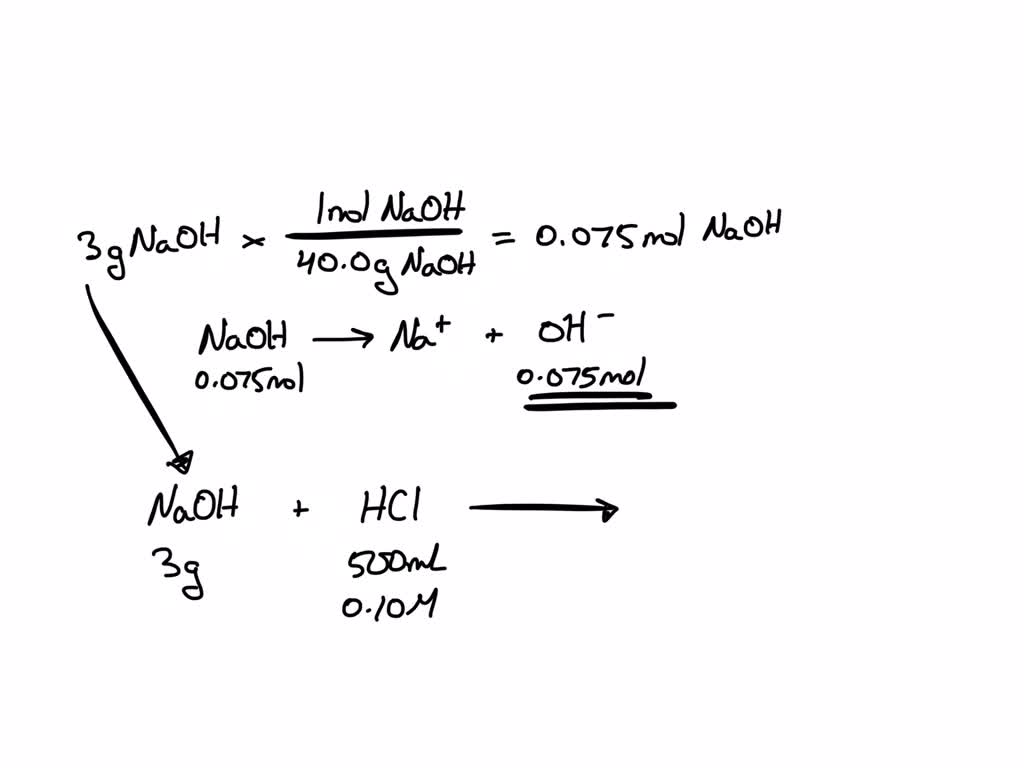 3g NaOH × 1mol NaOH / 40.0g NaOH = 0.075mol NaOH
NaOH → Na⁺ + OH⁻
0.075mol 0.075mol
NaOH + HCl →
3g 500mL
0.10M